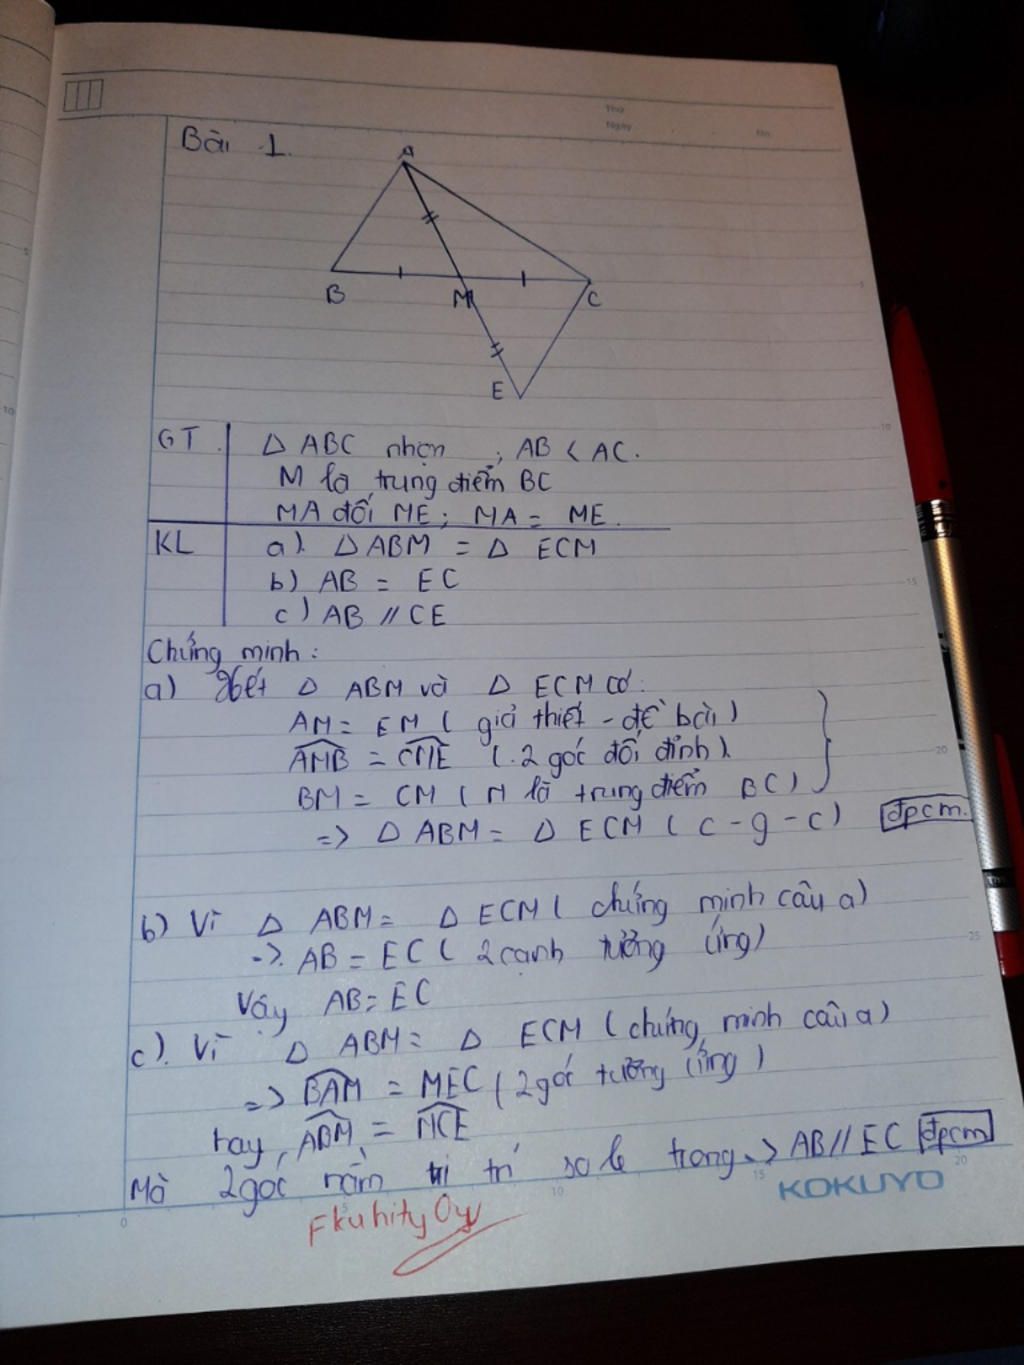 Thứ
Ngày
No.
Bài 1.
A
B
M
C
E
GT. Δ ABC nhọn ; AB < AC.
M là trung điểm BC
MA đối ME; MA = ME.
KL a). Δ ABM = Δ ECM
b) AB = EC
c) AB // CE
Chứng minh:
a) Xét Δ ABM và Δ ECM có:
AM = EM ( giả thiết - đề bài)
AMB = CME (.2 góc đối đỉnh).
BM = CM ( M là trung điểm BC)
=> Δ ABM = Δ ECM ( c - g - c) đpcm.
b) Vì Δ ABM = Δ ECM ( chứng minh câu a)
=> AB = EC ( 2 cạnh tương ứng)
Vậy AB = EC
c). Vì Δ ABM = Δ ECM (chứng minh câu a)
=> BAM = MEC ( 2 góc tương ứng )
hay, ABM = MCE
Mà 2 góc nằm vị trí so le trong => AB // EC đpcm
Fkuhity Oy
KOKUYO